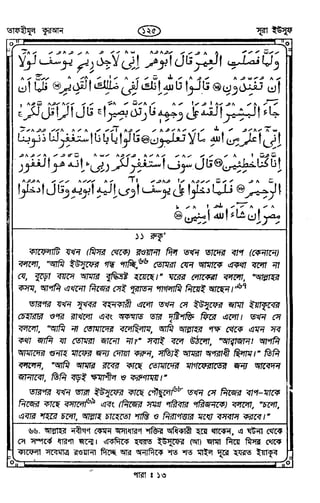 তাফহীমুল কুরআন
১২৫
সূরা ইউসুফ
وَلَمَّا فَصَلَتِ الْعِيْرُ قَالَ اَبُوْهُمْ اِنِّيْ لَاَجِدُ رِيْحَ يُوْسُفَ لَوْلَآ
اَنْ تُفَنِّدُوْنِ ۞ قَالُوْا تَاللّٰهِ اِنَّكَ لَفِيْ ضَلٰلِكَ الْقَدِيْمِ ۞ فَلَمَّآ اَنْ
جَآءَ الْبَشِيْرُ اَلْقٰىهُ عَلٰى وَجْهِهٖ فَارْتَدَّ بَصِيْرًا ۚ قَالَ اَلَمْ اَقُلْ لَّكُمْ ۙ
اِنِّيْٓ اَعْلَمُ مِنَ اللّٰهِ مَا لَا تَعْلَمُوْنَ ۞ قَالُوْا يٰٓاَبَانَا اسْتَغْفِرْ لَنَا ذُنُوْبَنَآ
اِنَّا كُنَّا خٰطِئِيْنَ ۞ قَالَ سَوْفَ اَسْتَغْفِرُ لَكُمْ رَبِّيْ ؕ اِنَّهٗ هُوَ الْغَفُوْرُ
الرَّحِيْمُ ۞ فَلَمَّا دَخَلُوْا عَلٰى يُوْسُفَ اٰوٰٓى اِلَيْهِ اَبَوَيْهِ وَقَالَ ادْخُلُوْا
مِصْرَ اِنْ شَآءَ اللّٰهُ اٰمِنِيْنَ ۞
১১ রুকূ'
কাফেলাটি যখন (মিসর থেকে) রওয়ানা দিল তখন তাদের বাপ (কেনানে)
বললো, "আমি ইউসুফের গন্ধ পাচ্ছি,৬৬ তোমরা যেন আমাকে একথা বলো না
যে, বুড়ো বয়সে আমার বুদ্ধিভ্রষ্ট হয়েছে।" ঘরের লোকেরা বললো, "আল্লাহর
কসম, আপনি এখনো নিজের সেই পুরাতন পাগলামি নিয়েই আছেন।"৬৭
তারপর যখন সুখবর বহনকারী এলো তখন সে ইউসুফের জামা ইয়াকূবের
চেহারার ওপর রাখলো এবং অকস্মাত তার দৃষ্টিশক্তি ফিরে এলো। তখন সে
বললো, "আমি না তোমাদের বলেছিলাম, আমি আল্লাহর পক্ষ থেকে এমন সব
কথা জানি যা তোমরা জানো না?" সবাই বলে উঠলো, "আব্বাজান! আপনি
আমাদের গুনাহ মাফের জন্য দোয়া করুন, সত্যিই আমরা অপরাধী ছিলাম।" তিনি
বললেন, "আমি আমার রবের কাছে তোমাদের মাগফেরাতের জন্য আবেদন
জানাবো, তিনি বড়ই ক্ষমাশীল ও করুণাময়।"
তারপর যখন তারা ইউসুফের কাছে পৌঁছুলো৬৮ তখন সে নিজের বাপ-মাকে
নিজের কাছে বসালো৬৯ এবং (নিজের সমগ্র পরিবার পরিজনকে) বললো, "চলো,
এবার শহরে চলো, আল্লাহ চাহেতো শান্তি ও নিরাপত্তার মধ্যে বসবাস করবে।"
৬৬. আল্লাহর নবীগণ কেমন অসাধারণ শক্তির অধিকারী হয়ে থাকেন, এ ঘটনা থেকে
সে সম্পর্কে ধারণা জন্মে। একদিকে হযরত ইউসুফের (আ) জামা নিয়ে মিসর থেকে
কাফেলা সবেমাত্র রওয়ানা দিচ্ছে আর অন্যদিকে শত শত মাইল দূরে হযরত ইয়াকূব
পারা : ১৩